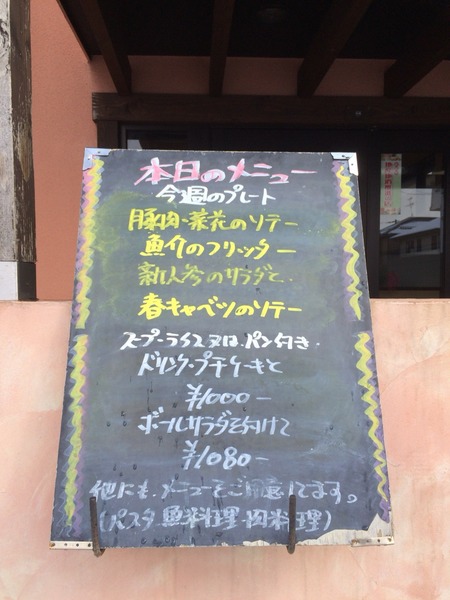 本日のメニュー
今週のプレート
豚肉・菜花のソテー
魚介のフリッター
新人参のサラダと
春キャベツのソテー
スープ・ライス又は、パン付き
ドリンク・プチケーキと
¥1000-
ボールサラダを付けて
¥1080-
他にも、メニューをご用意してます。
(パスタ、魚料理・肉料理)